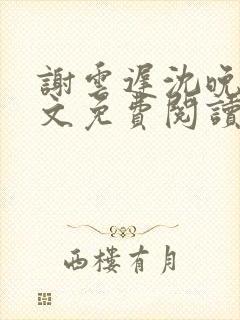 謝雲遲沈晚
文免費閱讀
西樓有月